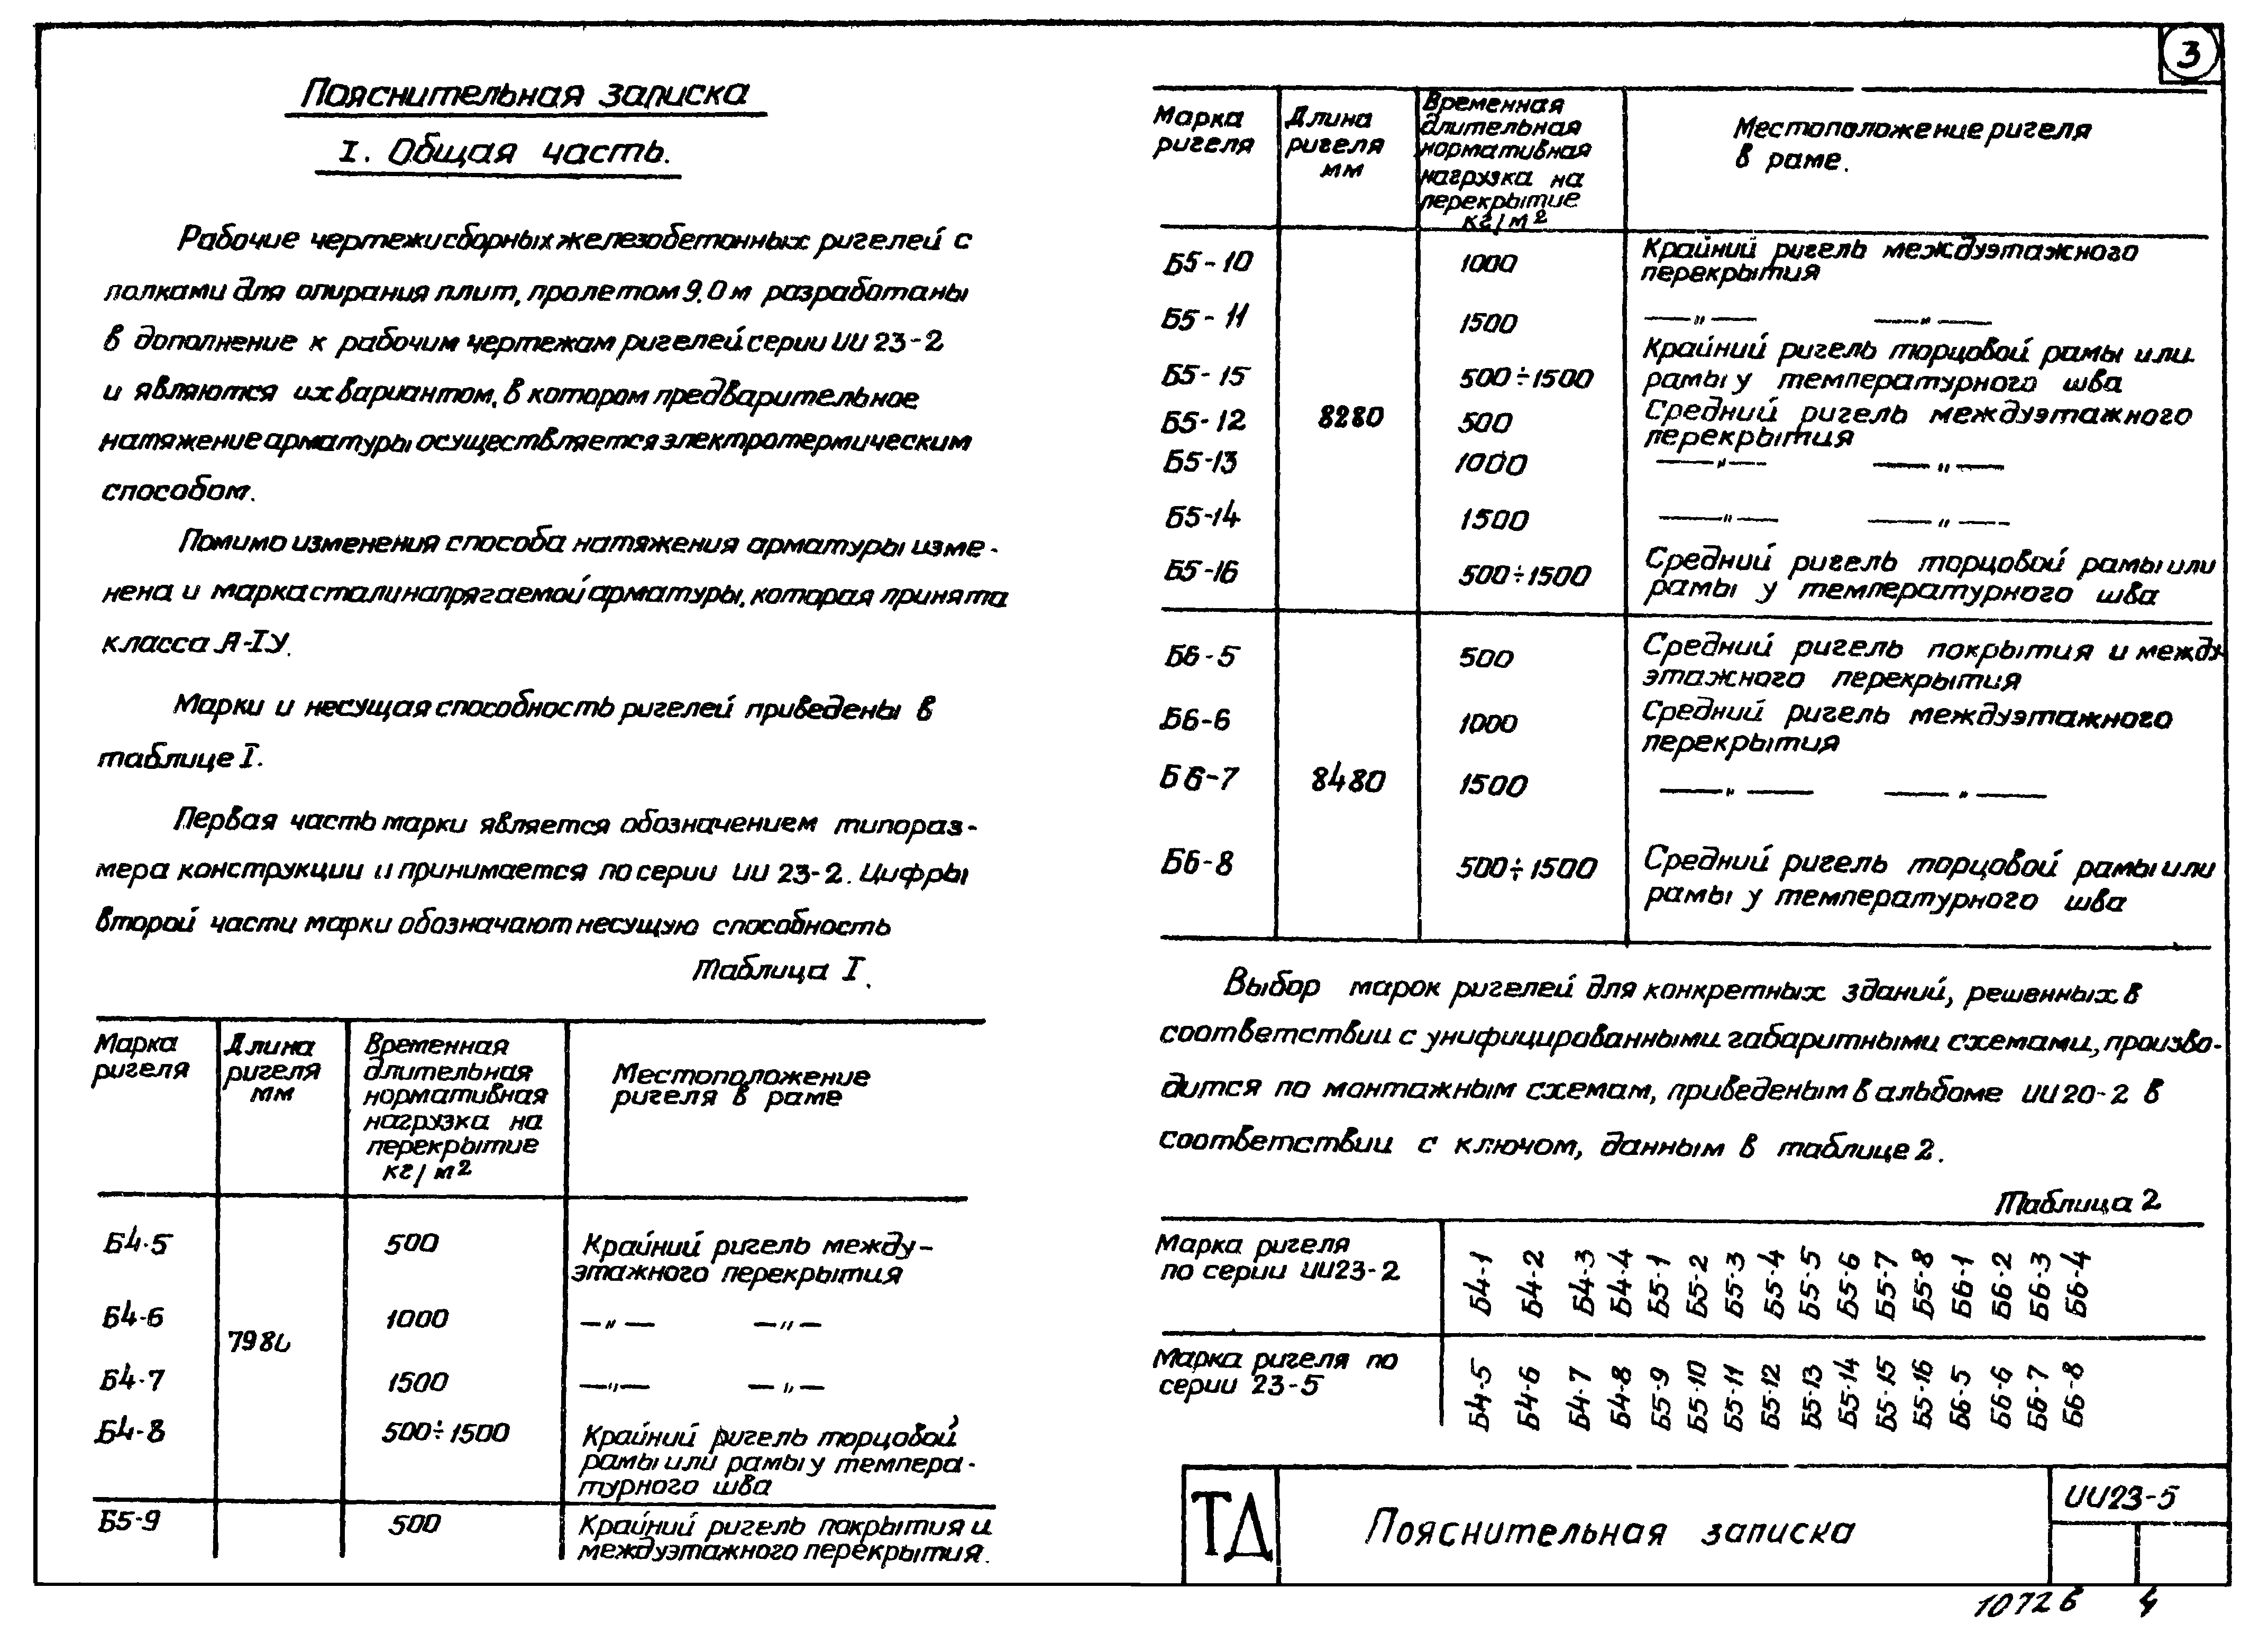 3
Пояснительная записка
I. Общая часть.
Рабочие чертежи сборных железобетонных ригелей с
полками для опирания плит, пролетом 9.0 м разработаны
в дополнение к рабочим чертежам ригелей серии ИИ 23-2
и являются их вариантом, в котором предварительное
натяжение арматуры осуществляется электротермическим
способом.
Помимо изменения способа натяжения арматуры изме-
нена и марка стали напрягаемой арматуры, которая принята
класса А-IУ.
Марки и несущая способность ригелей приведены в
таблице I.
Первая часть марки является обозначением типораз-
мера конструкции и принимается по серии ИИ 23-2. Цифры
второй части марки обозначают несущую способность
Таблица I.
Марка ригеля | Длина ригеля мм | Временная длительная нормативная нагрузка на перекрытие кг/м² | Местоположение ригеля в раме
Б4-5 500 Крайний ригель между-
этажного перекрытия
Б4-6 1000 —"— —"—
7980
Б4-7 1500 —"— —"—
Б4-8 500÷1500 Крайний ригель торцовой
рамы или рамы у темпера-
турного шва
Б5-9 500 Крайний ригель покрытия и
междуэтажного перекрытия.
Марка ригеля | Длина ригеля мм | Временная длительная нормативная нагрузка на перекрытие кг/м² | Местоположение ригеля в раме.
Б5-10 1000 Крайний ригель междуэтажного
перекрытия
Б5-11 1500 —"— —"—
Б5-15 500÷1500 Крайний ригель торцовой рамы или
рамы у температурного шва
Б5-12 8280 500 Средний ригель междуэтажного
перекрытия
Б5-13 1000 —"— —"—
Б5-14 1500 —"— —"—
Б5-16 500÷1500 Средний ригель торцовой рамы или
рамы у температурного шва
Б6-5 500 Средний ригель покрытия и между
этажного перекрытия
Б6-6 1000 Средний ригель междуэтажного
перекрытия
Б6-7 8480 1500 —"— —"—
Б6-8 500÷1500 Средний ригель торцовой рамы или
рамы у температурного шва
Выбор марок ригелей для конкретных зданий, решенных в
соответствии с унифицированными габаритными схемами, произво-
дится по монтажным схемам, приведеным в альбоме ИИ 20-2 в
соответствии с ключом, данным в таблице 2.
Таблица 2
Марка ригеля
по серии ИИ23-2
Б4-1 Б4-2 Б4-3 Б4-4 Б5-1 Б5-2 Б5-3 Б5-4 Б5-5 Б5-6 Б5-7 Б5-8 Б6-1 Б6-2 Б6-3 Б6-4
Марка ригеля по
серии 23-5
Б4-5 Б4-6 Б4-7 Б4-8 Б5-9 Б5-10 Б5-11 Б5-12 Б5-13 Б5-14 Б5-15 Б5-16 Б6-5 Б6-6 Б6-7 Б6-8
ТД
Пояснительная записка
ИИ23-5
10726 4